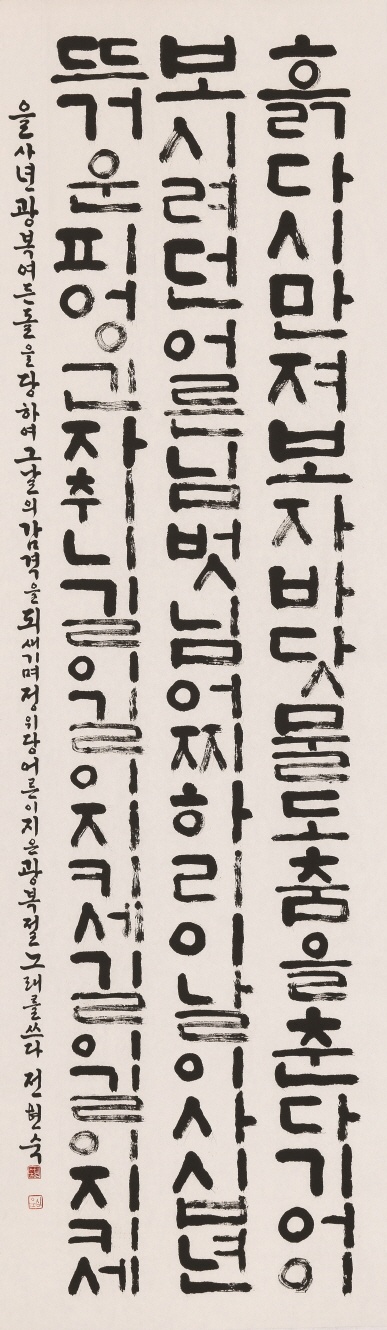 흙다시만져보자바닷물도춤을춘다기어이
보시려던어른님벗님어찌하리이날이사십년
뜨거운피엉긴자취니길이길이지키세길이길이지키세
을사년광복여든돌을당하여그날의감격을되새기며정위당어른이지은광복절노래를쓰다 전현숙